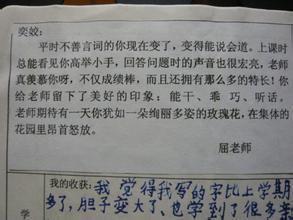 奕姣:
平时不善言词的你现在变了,变得能说会道。上课时
总能看见你高举小手,回答问题时的声音也很宏亮,老师
真羡慕你呀,不仅成绩棒,而且还拥有那么多的特长!你
给老师留下了美好的印象:能干、乖 巧、听话。
老师期待有一天你犹如一朵绚丽多姿的玫瑰花,在集体的
花园里昂首怒放。
屈老师
学 我的收获: 我觉得我写的字比上学期
多了,胆子变大了、也学到了很多